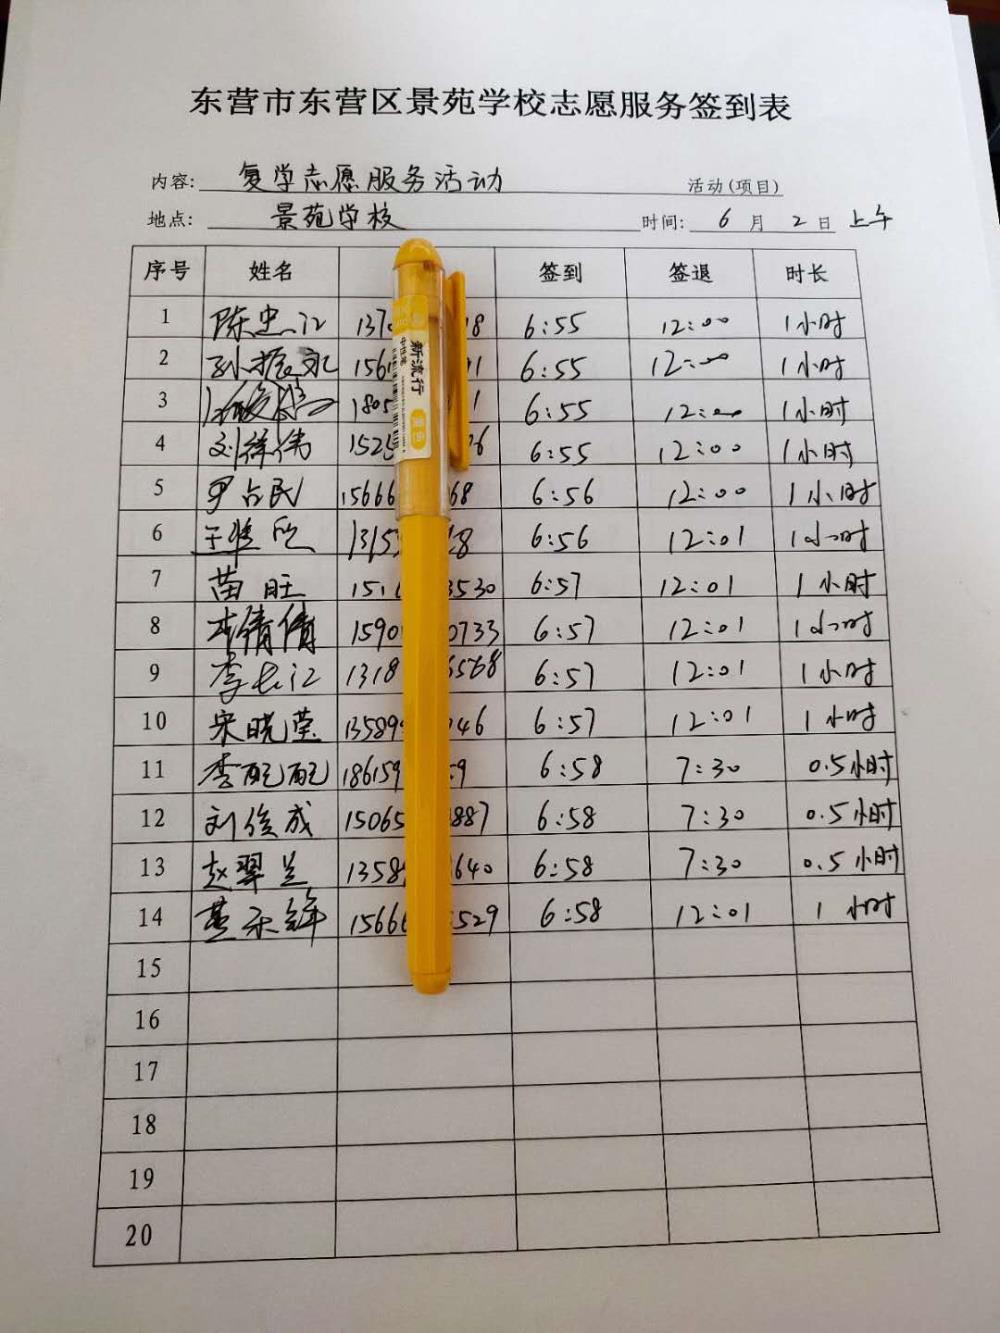 东营市东营区景苑学校志愿服务签到表
内容: 复学志愿服务活动 活动(项目)
地点: 景苑学校 时间: 6 月 2 日 上午
序号 姓名 签到 签退 时长
1 陈忠江 137 18 6:55 12:00 1小时
2 孙振永 156 1 6:55 12:00 1小时
3 1805 1 6:55 12:00 1小时
4 刘祥伟 1525 6 6:55 12:00 1小时
5 罗占民 15666 68 6:56 12:00 1小时
6 1315 8 6:56 12:01 1小时
7 苗旺 151 3530 6:57 12:01 1小时
8 李倩倩 1590 0733 6:57 12:01 1小时
9 李长江 1318 5568 6:57 12:01 1小时
10 宋晓莹 13589 46 6:57 12:01 1小时
11 李配配 186159 9 6:58 7:30 0.5小时
12 刘俊成 15065 887 6:58 7:30 0.5小时
13 赵翠兰 1358 640 6:58 7:30 0.5小时
14 15666 529 6:58 12:01 1小时
15
16
17
18
19
20
新流行
中性笔
黄色